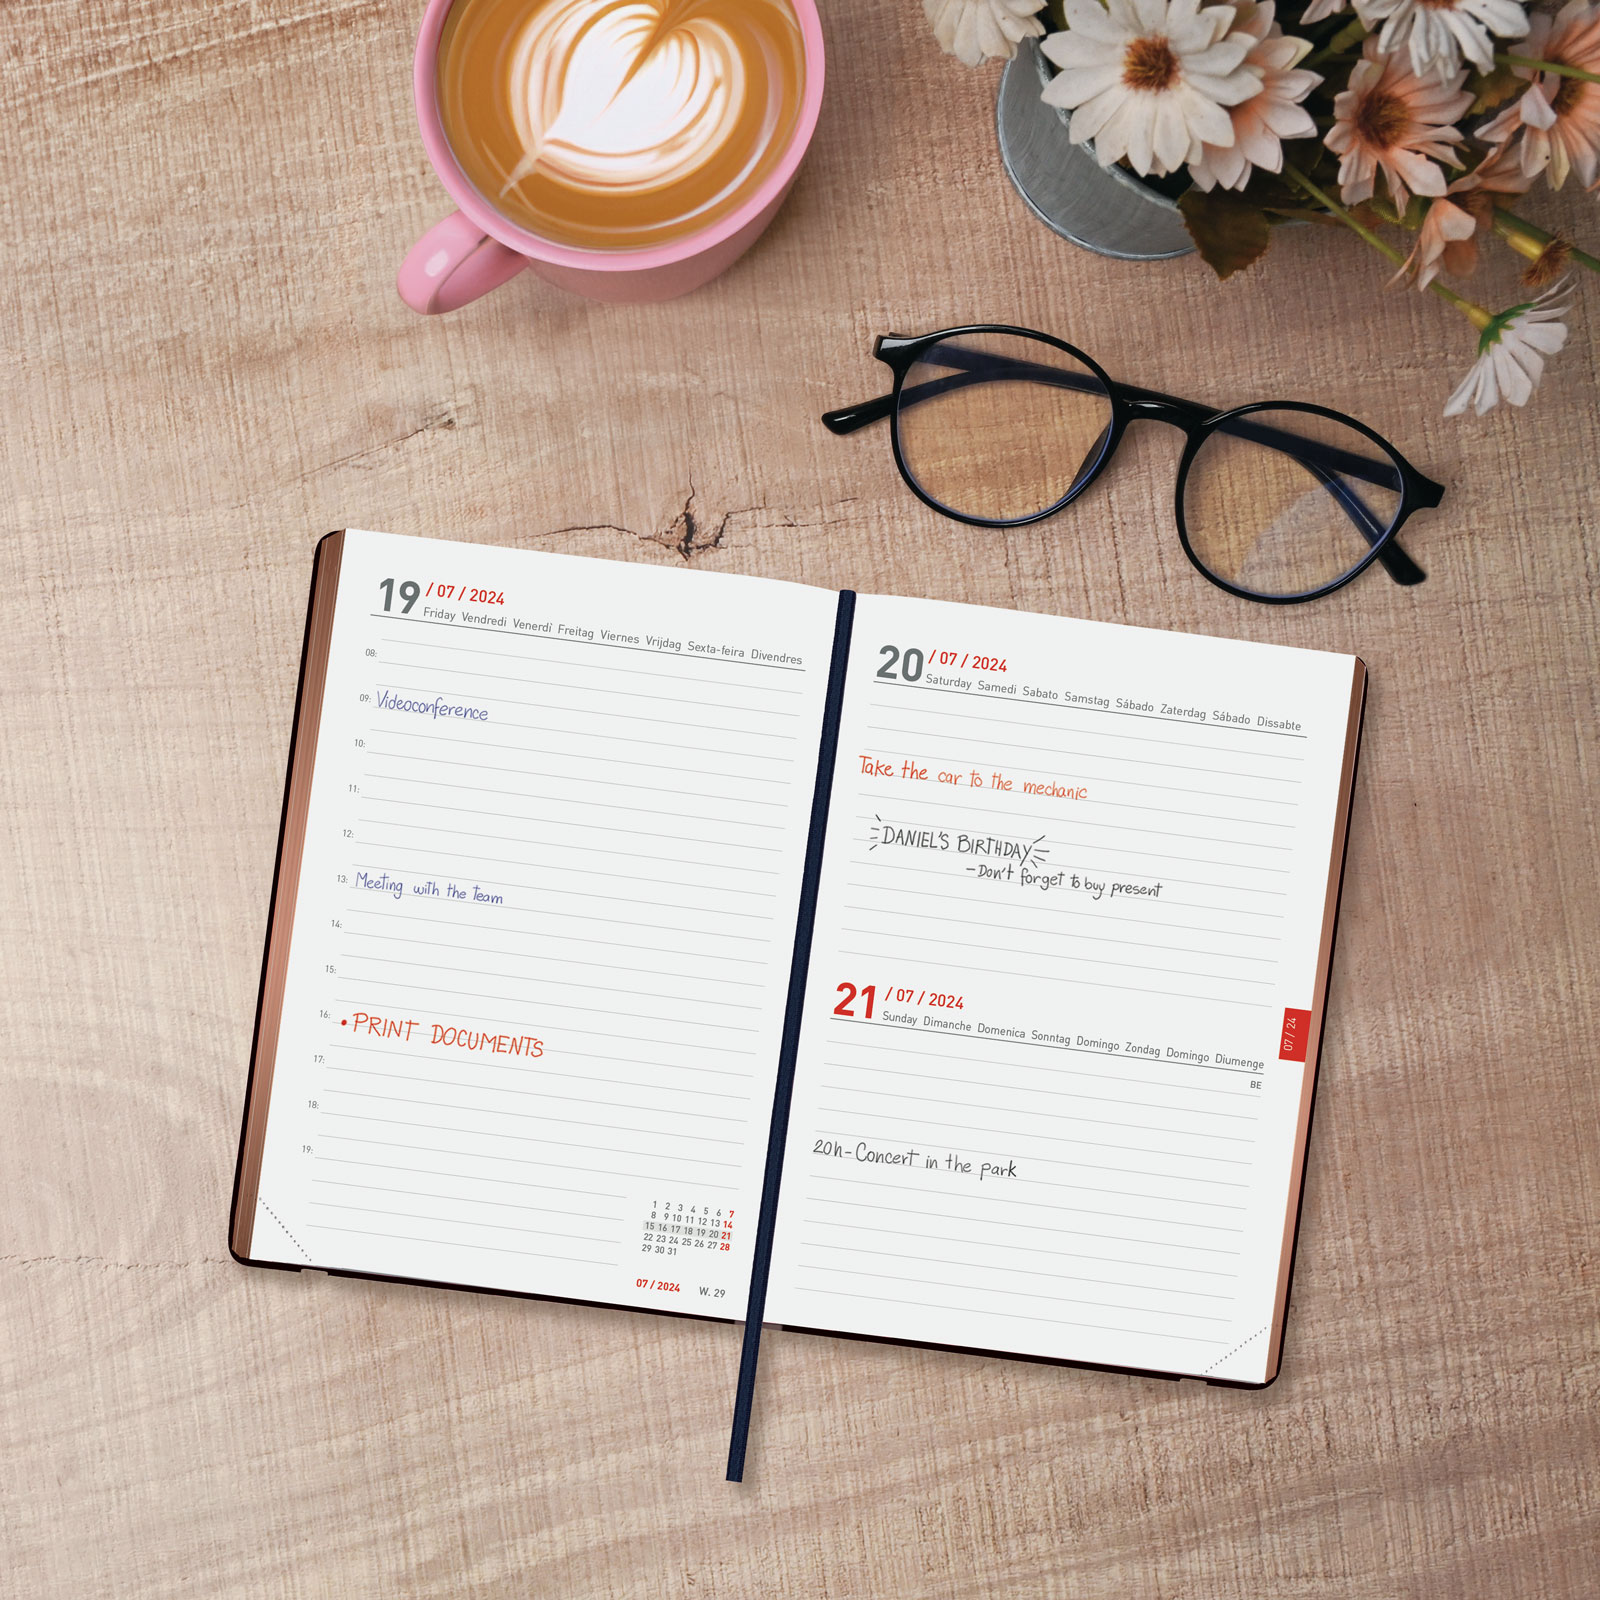 19 / 07 / 2024
Friday Vendredi Venerdì Freitag Viernes Vrijdag Sexta-feira Divendres
08:
09: Videoconference
10:
11:
12:
13: Meeting with the team
14:
15:
16: • PRINT DOCUMENTS
17:
18:
19:
1 2 3 4 5 6 7
8 9 10 11 12 13 14
15 16 17 18 19 20 21
22 23 24 25 26 27 28
29 30 31
07 / 2024 W. 29
20 / 07 / 2024
Saturday Samedi Sabato Samstag Sábado Zaterdag Sábado Dissabte
Take the car to the mechanic
DANIEL'S BIRTHDAY
-Don't forget to buy present
21 / 07 / 2024
Sunday Dimanche Domenica Sonntag Domingo Zondag Domingo Diumenge
BE
07 / 24
20h-Concert in the park